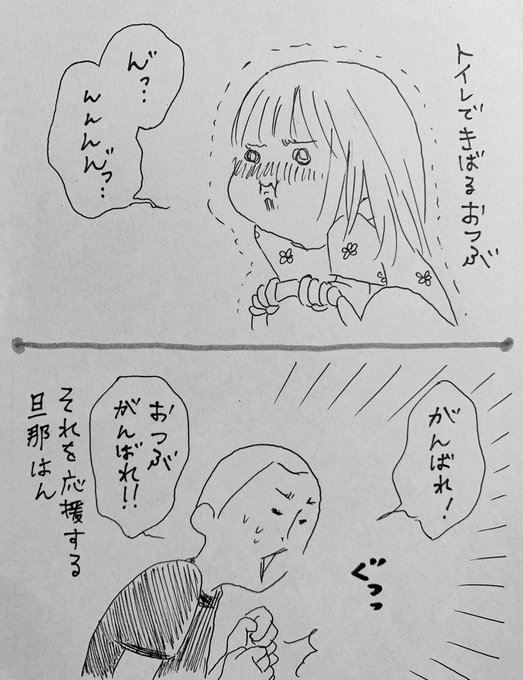 トイレできばるおつぶ
ん゙っ…
んんんん゙っ…
がんばれ！
ぐっっ
おつぶ
がんばれ!!
それを応援する
旦那はん